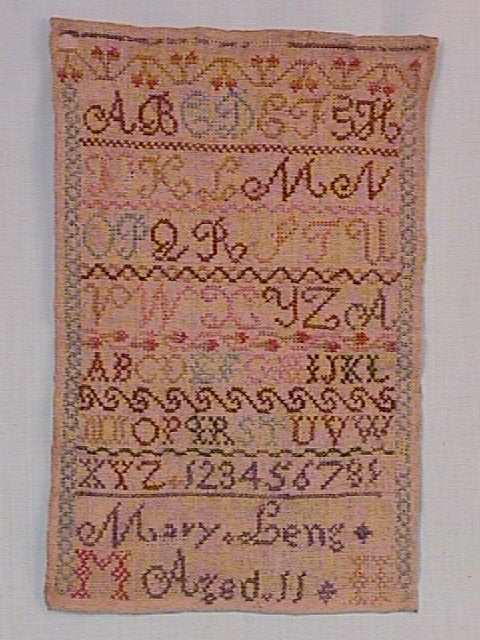 A B C D E F G H
I K L M N
O P Q R S T U
V W X Y Z A
A B C D E F G H I J K L
M N O P Q R S T U V W
X Y Z 1 2 3 4 5 6 7 8 9
Mary Leng
M Aged. 11 H